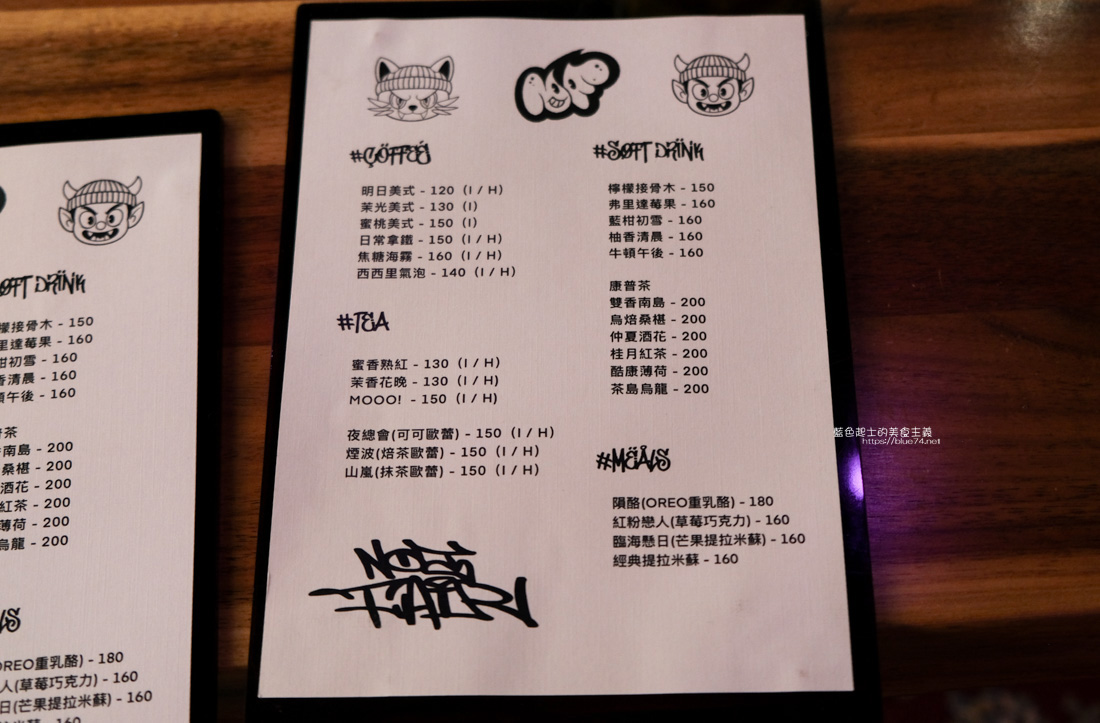 #COFFEE
明日美式 - 120（I / H）
茉光美式 - 130（I）
蜜桃美式 - 150（I）
日常拿鐵 - 150（I / H）
焦糖海霧 - 160（I / H）
西西里氣泡 - 140（I / H）
#TEA
蜜香熟紅 - 130（I / H）
茉香花晚 - 130（I / H）
MOOO! - 150（I / H）
夜總會(可可歐蕾) - 150（I / H）
煙波(焙茶歐蕾) - 150（I / H）
山嵐(抹茶歐蕾) - 150（I / H）
#SOFT DRINK
檸檬接骨木 - 150
弗里達莓果 - 160
藍柑初雪 - 160
柚香清晨 - 160
牛頓午後 - 160
康普茶
雙香南島 - 200
烏焙桑椹 - 200
仲夏酒花 - 200
桂月紅茶 - 200
酷康薄荷 - 200
茶島烏龍 - 200
#MEALS
隕酪(OREO重乳酪) - 180
紅粉戀人(草莓巧克力) - 160
臨海懸日(芒果提拉米蘇) - 160
經典提拉米蘇 - 160
SOFT DRINK
檬接骨木 - 150
里達莓果 - 160
柑初雪 - 160
香清晨 - 160
頓午後 - 160
普茶
南島 - 200
桑椹 - 200
酒花 - 200
紅茶 - 200
薄荷 - 200
烏龍 - 200
OREO重乳酪) - 180
人(草莓巧克力) - 160
日(芒果提拉米蘇) - 160
藍色起士的美食主義
https://blue74.net